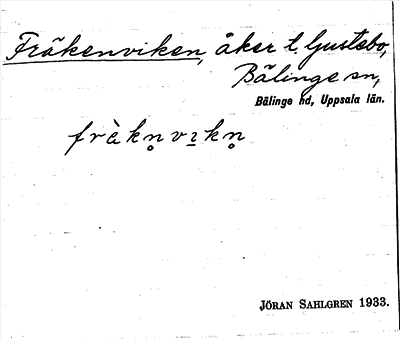 Fräkenviken, åker t. Gustebo,
Bälinge sn,
Bälinge hd, Uppsala län.
frὰkn̥vı̱kn̥
JÖRAN SAHLGREN 1933.